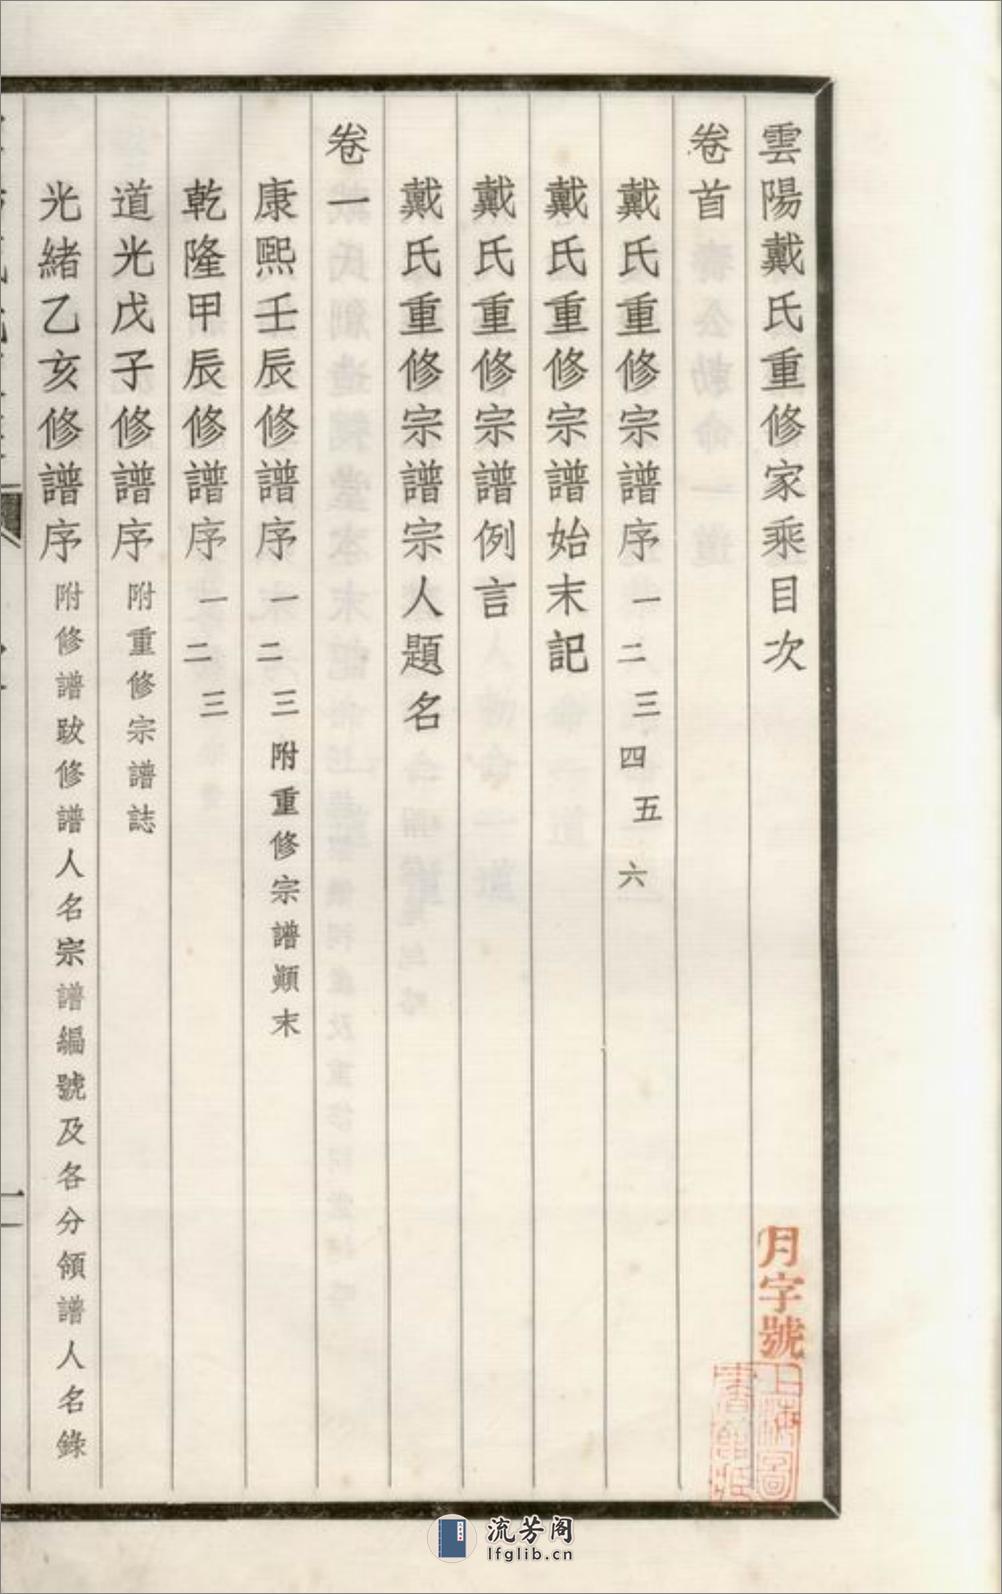 雲陽戴氏重修家乘目次
卷首
戴氏重修宗譜序一二三四五六
戴氏重修宗譜始末記
戴氏重修宗譜例言
戴氏重修宗譜宗人題名
卷一
康熙壬辰修譜序一二三附重修宗譜顚末
乾隆甲辰修譜序一二三
道光戊子修譜序附重修宗譜誌
光緒乙亥修譜序附修譜跋修譜人名宗譜編號及各分領譜人名錄
月字號
上海圖
書館藏
流芳阁
lfglib.cn